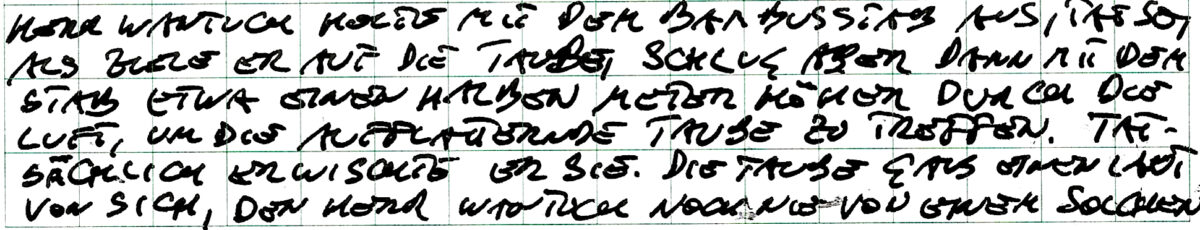 HERR WANTUCH HOLTE MIT DEM BAMBUSSTAB AUS, TAT SO,
ALS ZIELE ER AUF DIE TAUBE, SCHLUG ABER DANN MIT DEM
STAB ETWA EINEN HALBEN METER HÖHER DURCH DIE
LUFT, UM DIE AUFFLATTERNDE TAUBE ZU TREFFEN. TAT-
SÄCHLICH ERWISCHTE ER SIE. DIE TAUBE GAB EINEN LAUT
VON SICH, DEN HERR WANTUCH NOCH NIE VON EINEM SOLCHEN